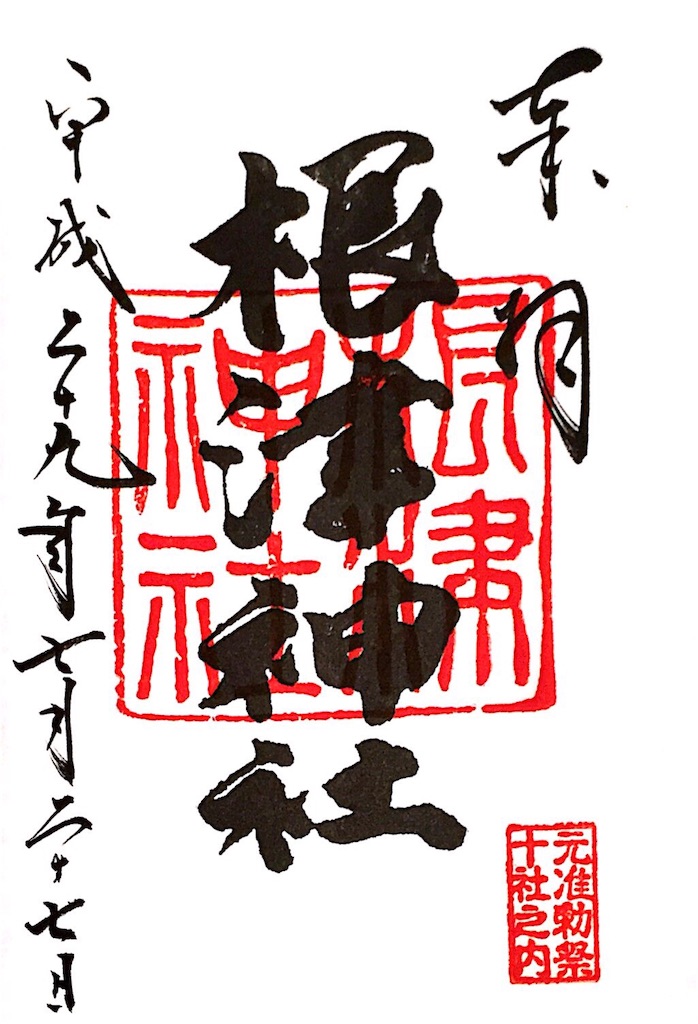 奉拝
根津神社
根津
神社
元准勅祭
十社之内
平成二十九年七月二十七日